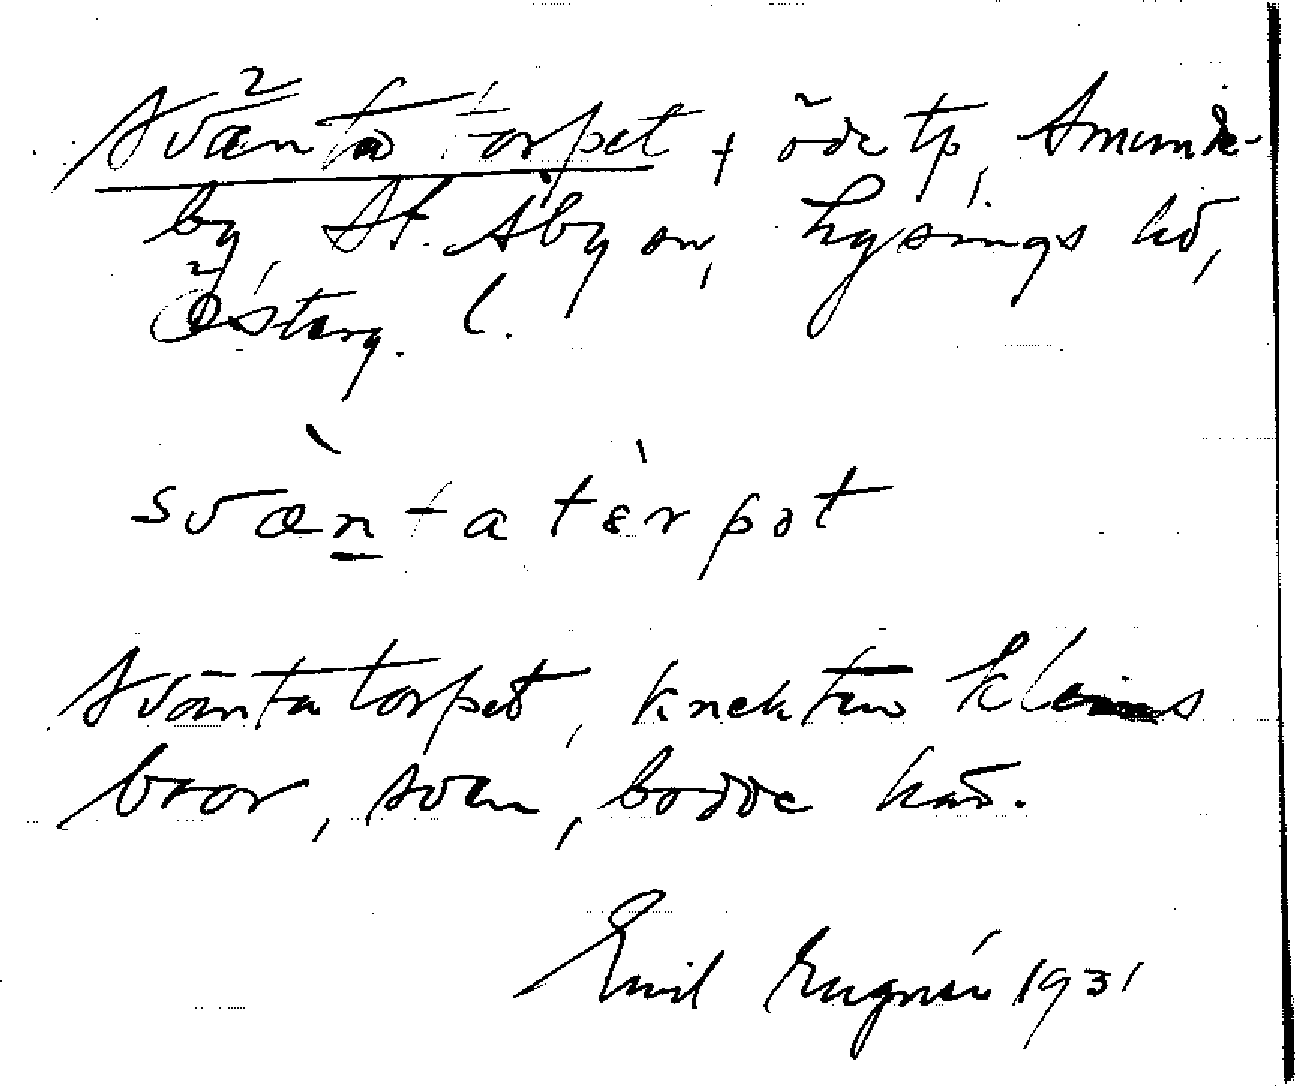 Sväntatorpet + öde tp, Amunde-
by, St. Åby sn, Lysings hd,
Österg. l.
svæ̀ntatèrpət
Sväntatorpet, knekten Kleins
bror, Sven, bodde här.
Emil Eugnér 1931